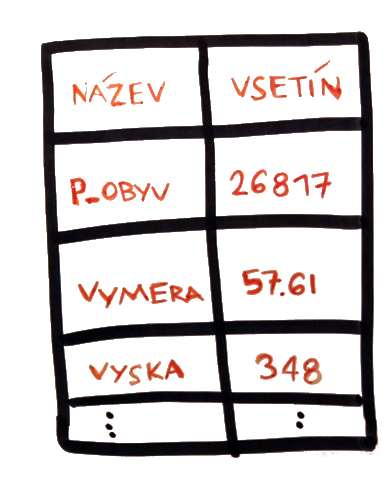 NÁZEV VSETÍN
P_OBYV 26817
VYMERA 57.61
VYSKA 348
⋮ ⋮